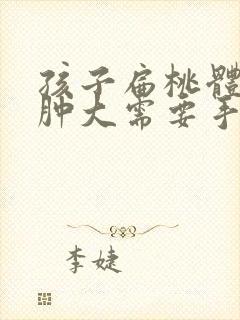 孩子扁桃體
肿大需要手
李婕